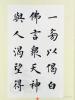 一旁以偈白
佛言眾天神
與人渴望得